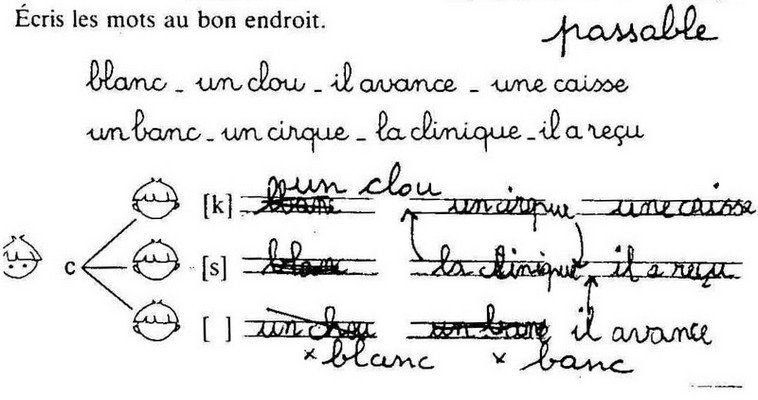 Écris les mots au bon endroit.
passable
blanc - un clou - il avance - une caisse
un banc - un cirque - la clinique - il a reçu
un clou
[k] blanc un cirque une caisse
c [s] blanc la clinique il a reçu
[ ] un chou un banc il avance
x blanc x banc